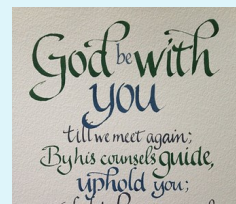 God be with
you
till we meet again;
By his counsels guide,
uphold you;